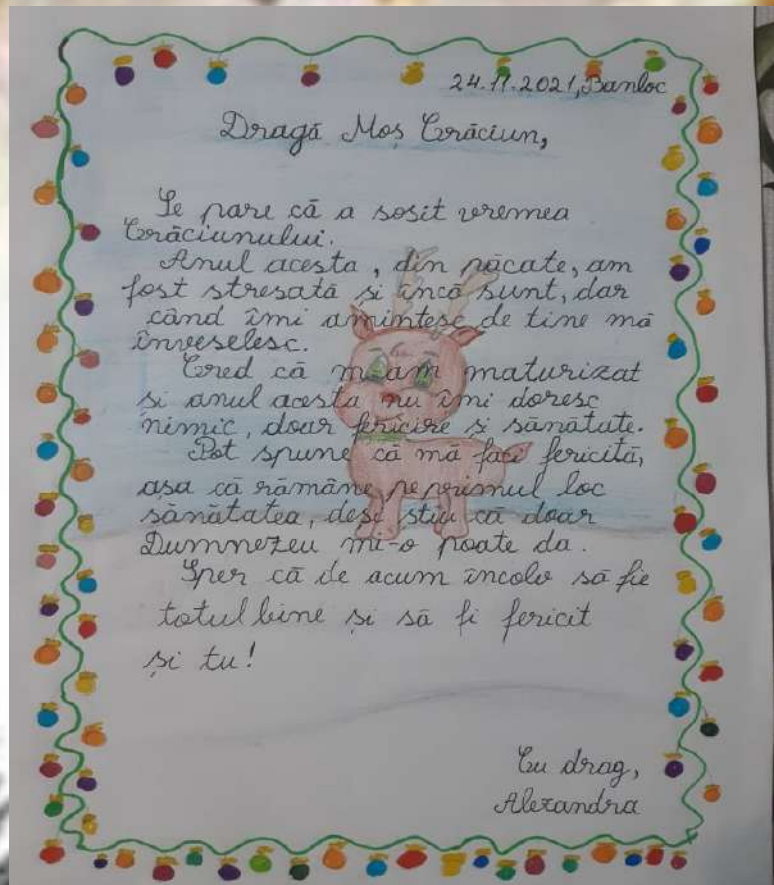 24.11.2021, Banloc
Dragă Moș Crăciun,
Se pare că a sosit vremea
Crăciunului.
Anul acesta, din păcate, am
fost stresată și încă sunt, dar
când îmi amintesc de tine mă
înveselesc.
Cred că m-am maturizat
și anul acesta nu îmi doresc
nimic, doar fericire și sănătate.
Pot spune că mă faci fericită,
așa că rămâne pe primul loc
sănătatea, deși știu că doar
Dumnezeu mi-o poate da.
Sper că de acum încolo să fie
totul bine și să fi fericit
și tu!
Cu drag,
Alexandra